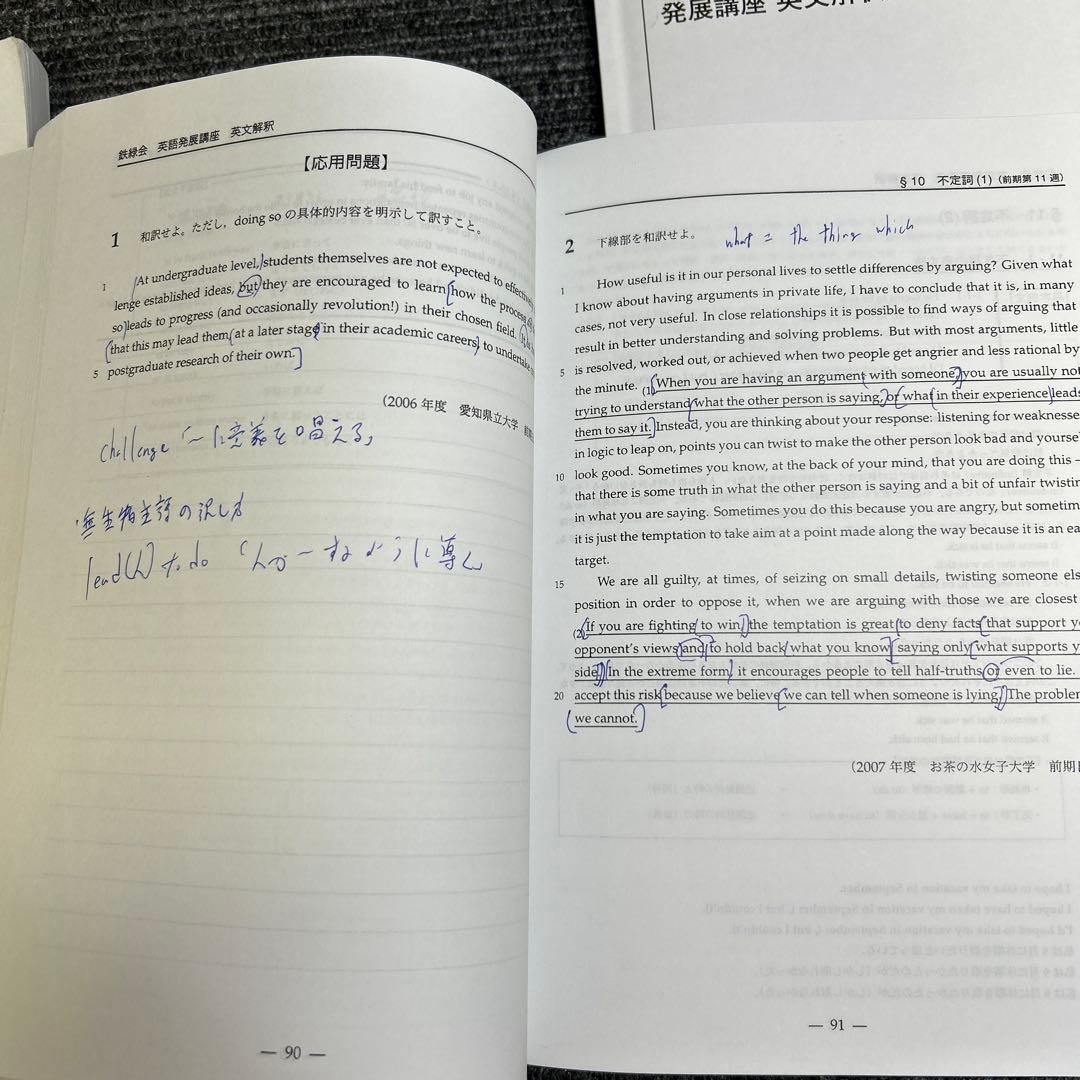 発展講座 英文解釈
鉄緑会 英語発展講座 英文解釈
【応用問題】
1 和訳せよ。ただし，doing so の具体的内容を明示して訳すこと。
1 At undergraduate level, students themselves are not expected to effectively
lenge established ideas, but they are encouraged to learn how the process
so leads to progress (and occasionally revolution!) in their chosen field.
that this may lead them, at a later stage in their academic careers, to undertake
5 postgraduate research of their own.
(2006 年度 愛知県立大学
challenge 「〜に意義を唱える」
・無生物主語の訳し方
lead(人) to do 「人が〜するように導く
§10 不定詞 (1)（前期第 11 週）
2 下線部を和訳せよ。
what = the thing which
1 How useful is it in our personal lives to settle differences by arguing? Given what
I know about having arguments in private life, I have to conclude that it is, in many
cases, not very useful. In close relationships it is possible to find ways of arguing that
result in better understanding and solving problems. But with most arguments, little
5 is resolved, worked out, or achieved when two people get angrier and less rational by
the minute. (1) When you are having an argument with someone, you are usually not
trying to understand what the other person is saying, or what in their experience leads
them to say it. Instead, you are thinking about your response: listening for weakness
in logic to leap on, points you can twist to make the other person look bad and yourse
10 look good. Sometimes you know, at the back of your mind, that you are doing this –
that there is some truth in what the other person is saying and a bit of unfair twistin
in what you are saying. Sometimes you do this because you are angry, but sometim
it is just the temptation to take aim at a point made along the way because it is an ea
target.
15 We are all guilty, at times, of seizing on small details, twisting someone els
position in order to oppose it, when we are arguing with those we are closest
(2) If you are fighting to win, the temptation is great to deny facts that support y
opponent's views and to hold back what you know, saying only what supports y
side. In the extreme form, it encourages people to tell half-truths or even to lie.
20 accept this risk because we believe we can tell when someone is lying. The problem
we cannot.
(2007 年度 お茶の水女子大学 前期
— 90 —
— 91 —